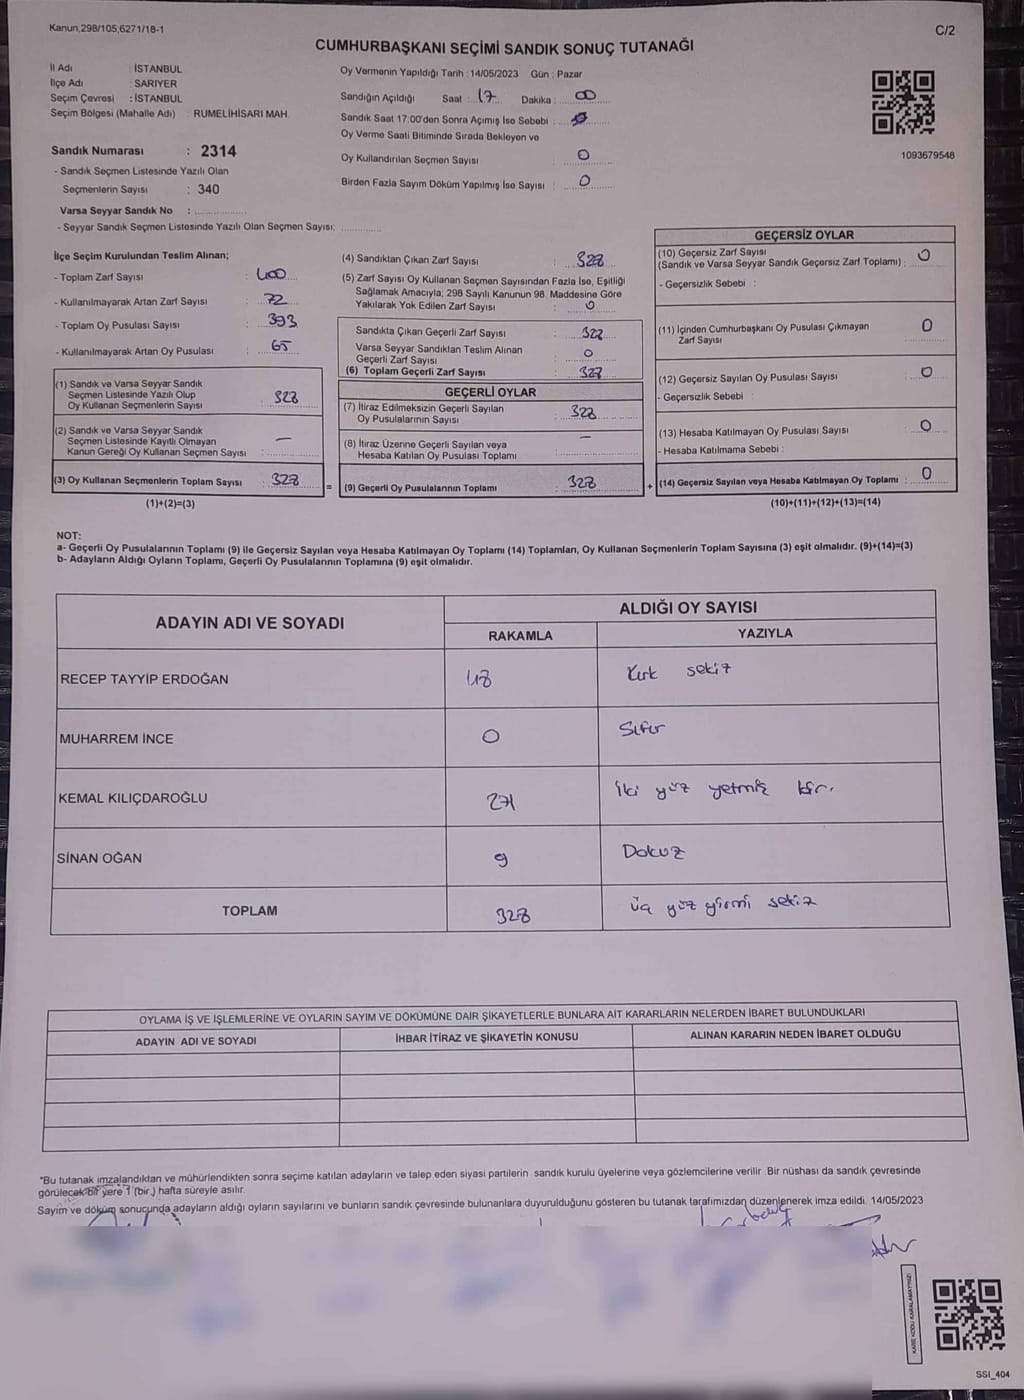 Kanun,298/105,6271/18-1
C/2
CUMHURBAŞKANI SEÇİMİ SANDIK SONUÇ TUTANAĞI
İl Adı : İSTANBUL
İlçe Adı : SARIYER
Seçim Çevresi : İSTANBUL
Seçim Bölgesi (Mahalle Adı) : RUMELİHİSARI MAH.
Sandık Numarası : 2314
- Sandık Seçmen Listesinde Yazılı Olan
Seçmenlerin Sayısı : 340
Varsa Seyyar Sandık No : ..................
- Seyyar Sandık Seçmen Listesinde Yazılı Olan Seçmen Sayısı: ..............
Oy Vermenin Yapıldığı Tarih : 14/05/2023 Gün : Pazar
Sandığın Açıldığı Saat : 17 Dakika : 00
Sandık Saat 17:00'den Sonra Açımış İse Sebebi :
Oy Verme Saati Bitiminde Sırada Bekleyen ve
Oy Kullandırılan Seçmen Sayısı : 0
Birden Fazla Sayım Döküm Yapılmış İse Sayısı : 0
1093679548
İlçe Seçim Kurulundan Teslim Alınan;
- Toplam Zarf Sayısı : 400
- Kullanılmayarak Artan Zarf Sayısı : 72
- Toplam Oy Pusulası Sayısı : 393
- Kullanılmayarak Artan Oy Pusulası : 65
(1) Sandık ve Varsa Seyyar Sandık
Seçmen Listesinde Yazılı Olup
Oy Kullanan Seçmenlerin Sayısı : 328
(2) Sandık ve Varsa Seyyar Sandık
Seçmen Listesinde Kayıtlı Olmayan
Kanun Gereği Oy Kullanan Seçmen Sayısı : —
(3) Oy Kullanan Seçmenlerin Toplam Sayısı : 328
(1)+(2)=(3)
(4) Sandıktan Çıkan Zarf Sayısı : 328
(5) Zarf Sayısı Oy Kullanan Seçmen Sayısından Fazla İse, Eşitliği
Sağlamak Amacıyla; 298 Sayılı Kanunun 98. Maddesine Göre
Yakılarak Yok Edilen Zarf Sayısı : 0
Sandıkta Çıkan Geçerli Zarf Sayısı : 328
Varsa Seyyar Sandıktan Teslim Alınan
Geçerli Zarf Sayısı : 0
(6) Toplam Geçerli Zarf Sayısı : 328
GEÇERLİ OYLAR
(7) İtiraz Edilmeksizin Geçerli Sayılan
Oy Pusulalarının Sayısı : 328
(8) İtiraz Üzerine Geçerli Sayılan veya
Hesaba Katılan Oy Pusulası Toplamı : —
= (9) Geçerli Oy Pusulalarının Toplamı : 328
GEÇERSİZ OYLAR
(10) Geçersiz Zarf Sayısı
(Sandık ve Varsa Seyyar Sandık Geçersiz Zarf Toplamı) : 0
- Geçersizlik Sebebi :
(11) İçinden Cumhurbaşkanı Oy Pusulası Çıkmayan
Zarf Sayısı : 0
(12) Geçersiz Sayılan Oy Pusulası Sayısı : 0
- Geçersizlik Sebebi :
(13) Hesaba Katılmayan Oy Pusulası Sayısı : 0
- Hesaba Katılmama Sebebi :
+ (14) Geçersiz Sayılan veya Hesaba Katılmayan Oy Toplamı : 0
(10)+(11)+(12)+(13)=(14)
NOT:
a- Geçerli Oy Pusulalarının Toplamı (9) ile Geçersiz Sayılan veya Hesaba Katılmayan Oy Toplamı (14) Toplamları, Oy Kullanan Seçmenlerin Toplam Sayısına (3) eşit olmalıdır. (9)+(14)=(3)
b- Adayların Aldığı Oyların Toplamı, Geçerli Oy Pusulalarının Toplamına (9) eşit olmalıdır.
ADAYIN ADI VE SOYADI
ALDIĞI OY SAYISI
RAKAMLA YAZIYLA
RECEP TAYYİP ERDOĞAN 48 Kırk sekiz
MUHARREM İNCE 0 Sıfır
KEMAL KILIÇDAROĞLU 271 İki yüz yetmiş bir.
SİNAN OĞAN 9 Dokuz
TOPLAM 328 üç yüz yirmi sekiz
OYLAMA İŞ VE İŞLEMLERİNE VE OYLARIN SAYIM VE DÖKÜMÜNE DAİR ŞİKAYETLERLE BUNLARA AİT KARARLARIN NELERDEN İBARET BULUNDUKLARI
ADAYIN ADI VE SOYADI İHBAR İTİRAZ VE ŞİKAYETİN KONUSU ALINAN KARARIN NEDEN İBARET OLDUĞU
*Bu tutanak imzalandıktan ve mühürlendikten sonra seçime katılan adayların ve talep eden siyasi partilerin sandık kurulu üyelerine veya gözlemcilerine verilir. Bir nüshası da sandık çevresinde
görülecek bir yere 1 (bir.) hafta süreyle asılır.
Sayım ve döküm sonucunda adayların aldığı oyların sayılarını ve bunların sandık çevresinde bulunanlara duyurulduğunu gösteren bu tutanak tarafımızdan düzenlenerek imza edildi. 14/05/2023
KARE KODU KARALAMAYINIZ!
SSI_404